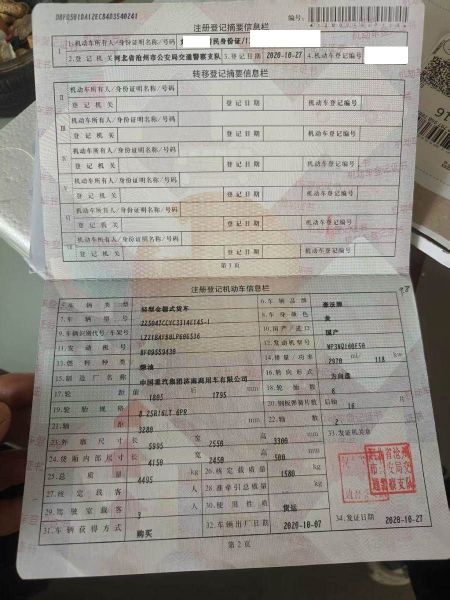 注册登记摘要信息栏
编号:
1.机动车所有人/身份证明名称/号码 民身份证/
2.登记机关 河北省沧州市公安局交通警察支队 3.登记日期 2020-10-27 4.机动车登记编号
转移登记摘要信息栏
机动车所有人/身份证明名称/号码
登记机关 登记日期 机动车登记编号
机动车所有人/身份证明名称/号码
登记机关 登记日期 机动车登记编号
机动车所有人/身份证明名称/号码
登记机关 登记日期 机动车登记编号
机动车所有人/身份证明名称/号码
登记机关 登记日期 机动车登记编号
机动车所有人/身份证明名称/号码
登记机关 登记日期 机动车登记编号
第1页
注册登记机动车信息栏
5.车辆类型 轻型仓栅式货车 6.车辆品牌 豪沃牌
7.车辆型号 8.车身颜色 黄
9.车辆识别代号/车架号 10.国产/进口 国产
11.发动机号 12.发动机型号
13.燃料种类 柴油 14.排量/功率 2970 ml/ 118 kw
15.制造厂名称 中国重汽集团济南商用车有限公司 16.转向形式 方向盘
17.轮距 前1805 后1795 mm 18.轮胎数 6
19.轮胎规格 8.25R16LT 6PR 20.钢板弹簧片数 后轴 片
21.轴距 3280 mm 22.轴数 2
23.外廓尺寸 长5995 宽2550 高3300 mm 33.发证机关章
24.货厢内部尺寸 长4150 宽2450 高500 mm
25.总质量 4495 kg 26.核定载质量 1580 kg
27.核定载客 人 28.准牵引总质量 kg
29.驾驶室载客 3 人 30.使用性质 货运
31.车辆获得方式 购买 32.车辆出厂日期 2020-10-07 34.发证日期 2020-10-27
第2页